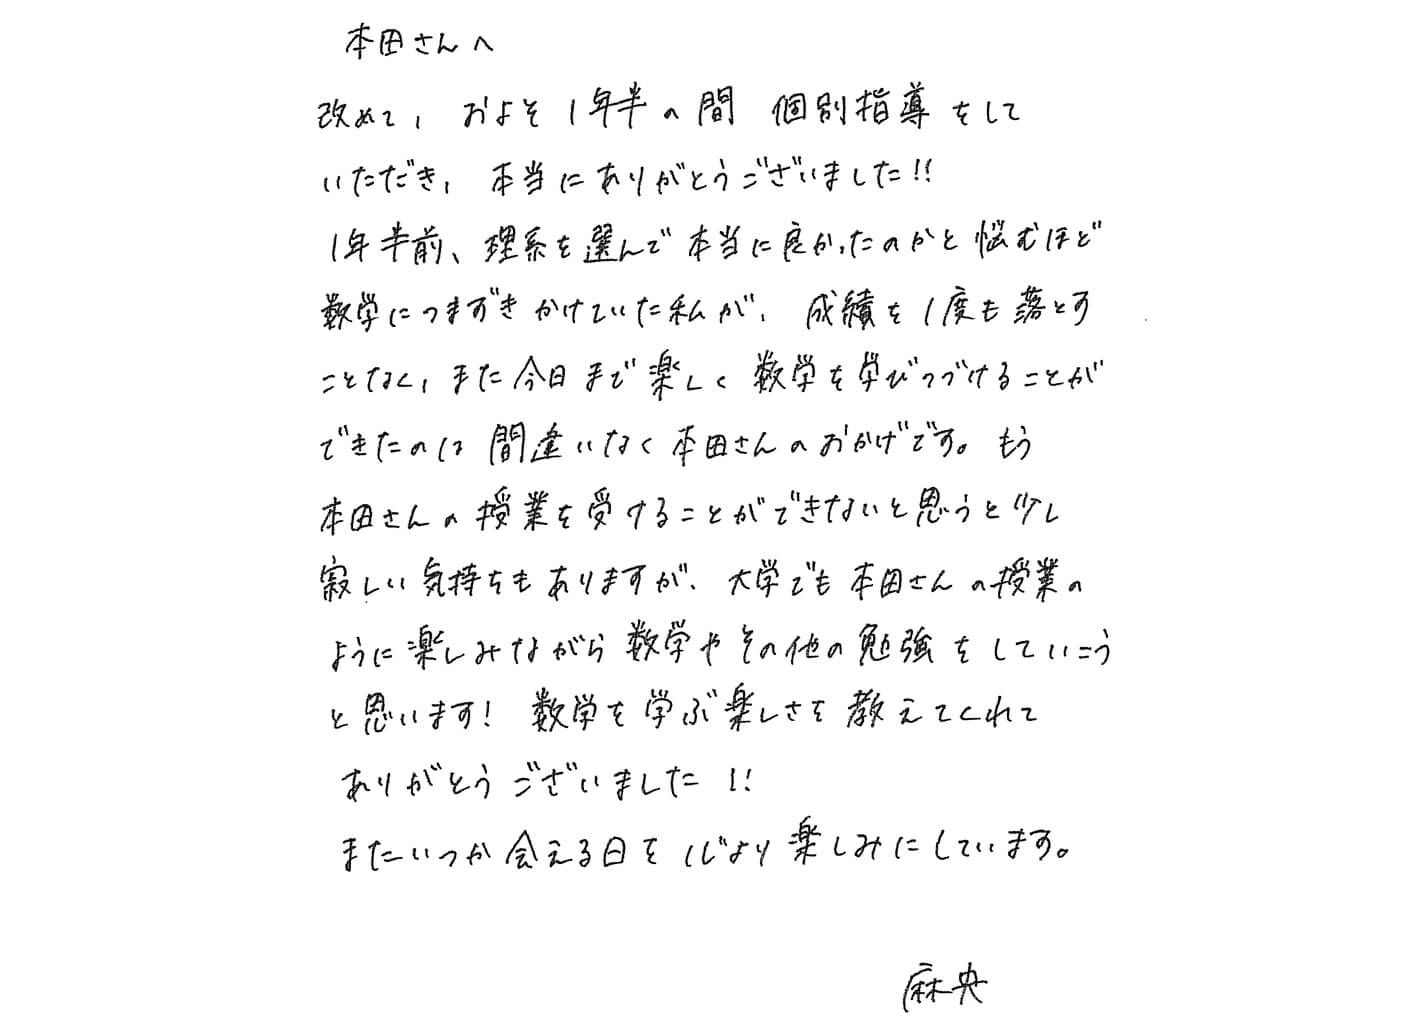 本田さんへ
改めて、およそ1年半の間 個別指導をして
いただき、本当にありがとうございました!!
1年半前、理系を選んで本当に良かったのかと悩むほど
数学につまずきかけていた私が、成績を1度も落とす
ことなく、また今日まで楽しく数学を学びつづけることが
できたのは間違いなく本田さんのおかげです。もう
本田さんの授業を受けることができないと思うと少し
寂しい気持ちもありますが、大学でも本田さんの授業の
ように楽しみながら数学やその他の勉強をしていこう
と思います! 数学を学ぶ楽しさを教えてくれて
ありがとうございました!!
またいつか会える日を心より楽しみにしています。
麻央